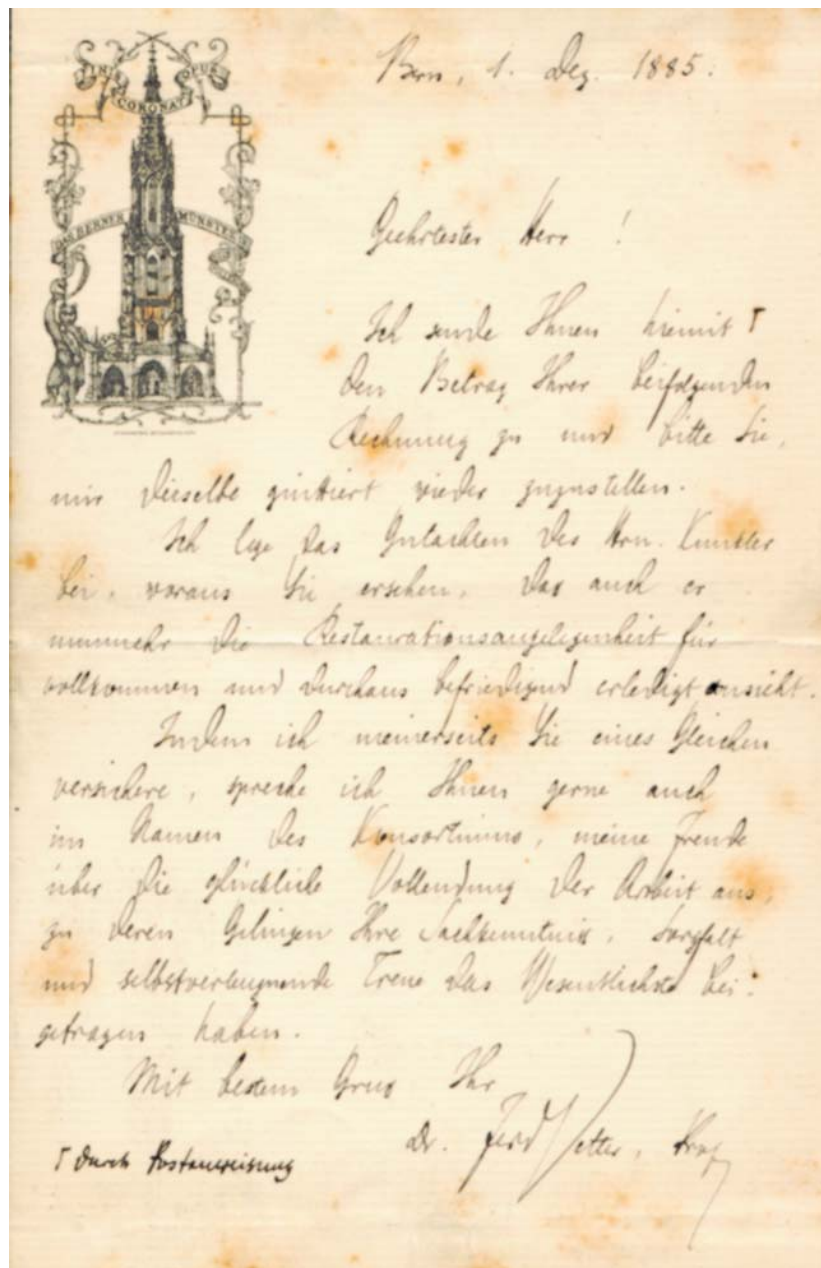 FINIS CORONAT OPUS
DAS BERNER MÜNSTER
Bern, 1. Dez. 1885.
Geehrtester Herr!
Ich sende Ihnen hiemit ┌
den Betrag Ihrer beifolgenden
Rechnung zu und bitte Sie,
mir dieselbe quittiert wieder zuzustellen.
Ich lege das Gutachten des Hrn. Kunstler
bei, woraus Sie ersehen, das auch er
nunmehr die Restaurationsangelegenheit für
vollkommen und durchaus befriedigend erledigt ansieht.
Indem ich meinerseits Sie eines Gleichen
versichere, spreche ich Ihnen gerne auch
im Namen des Konsortiums, meine Freude
über die glückliche Vollendung der Arbeit aus,
zu deren Gelingen Ihre Sachkenntnis, Sorgfalt
und selbstverleugnende Treue das Wesentlichste bei-
getragen haben.
Mit bestem Gruss Ihr
Dr. Ferd Vetter, Prof
┌ durch Postanweisung